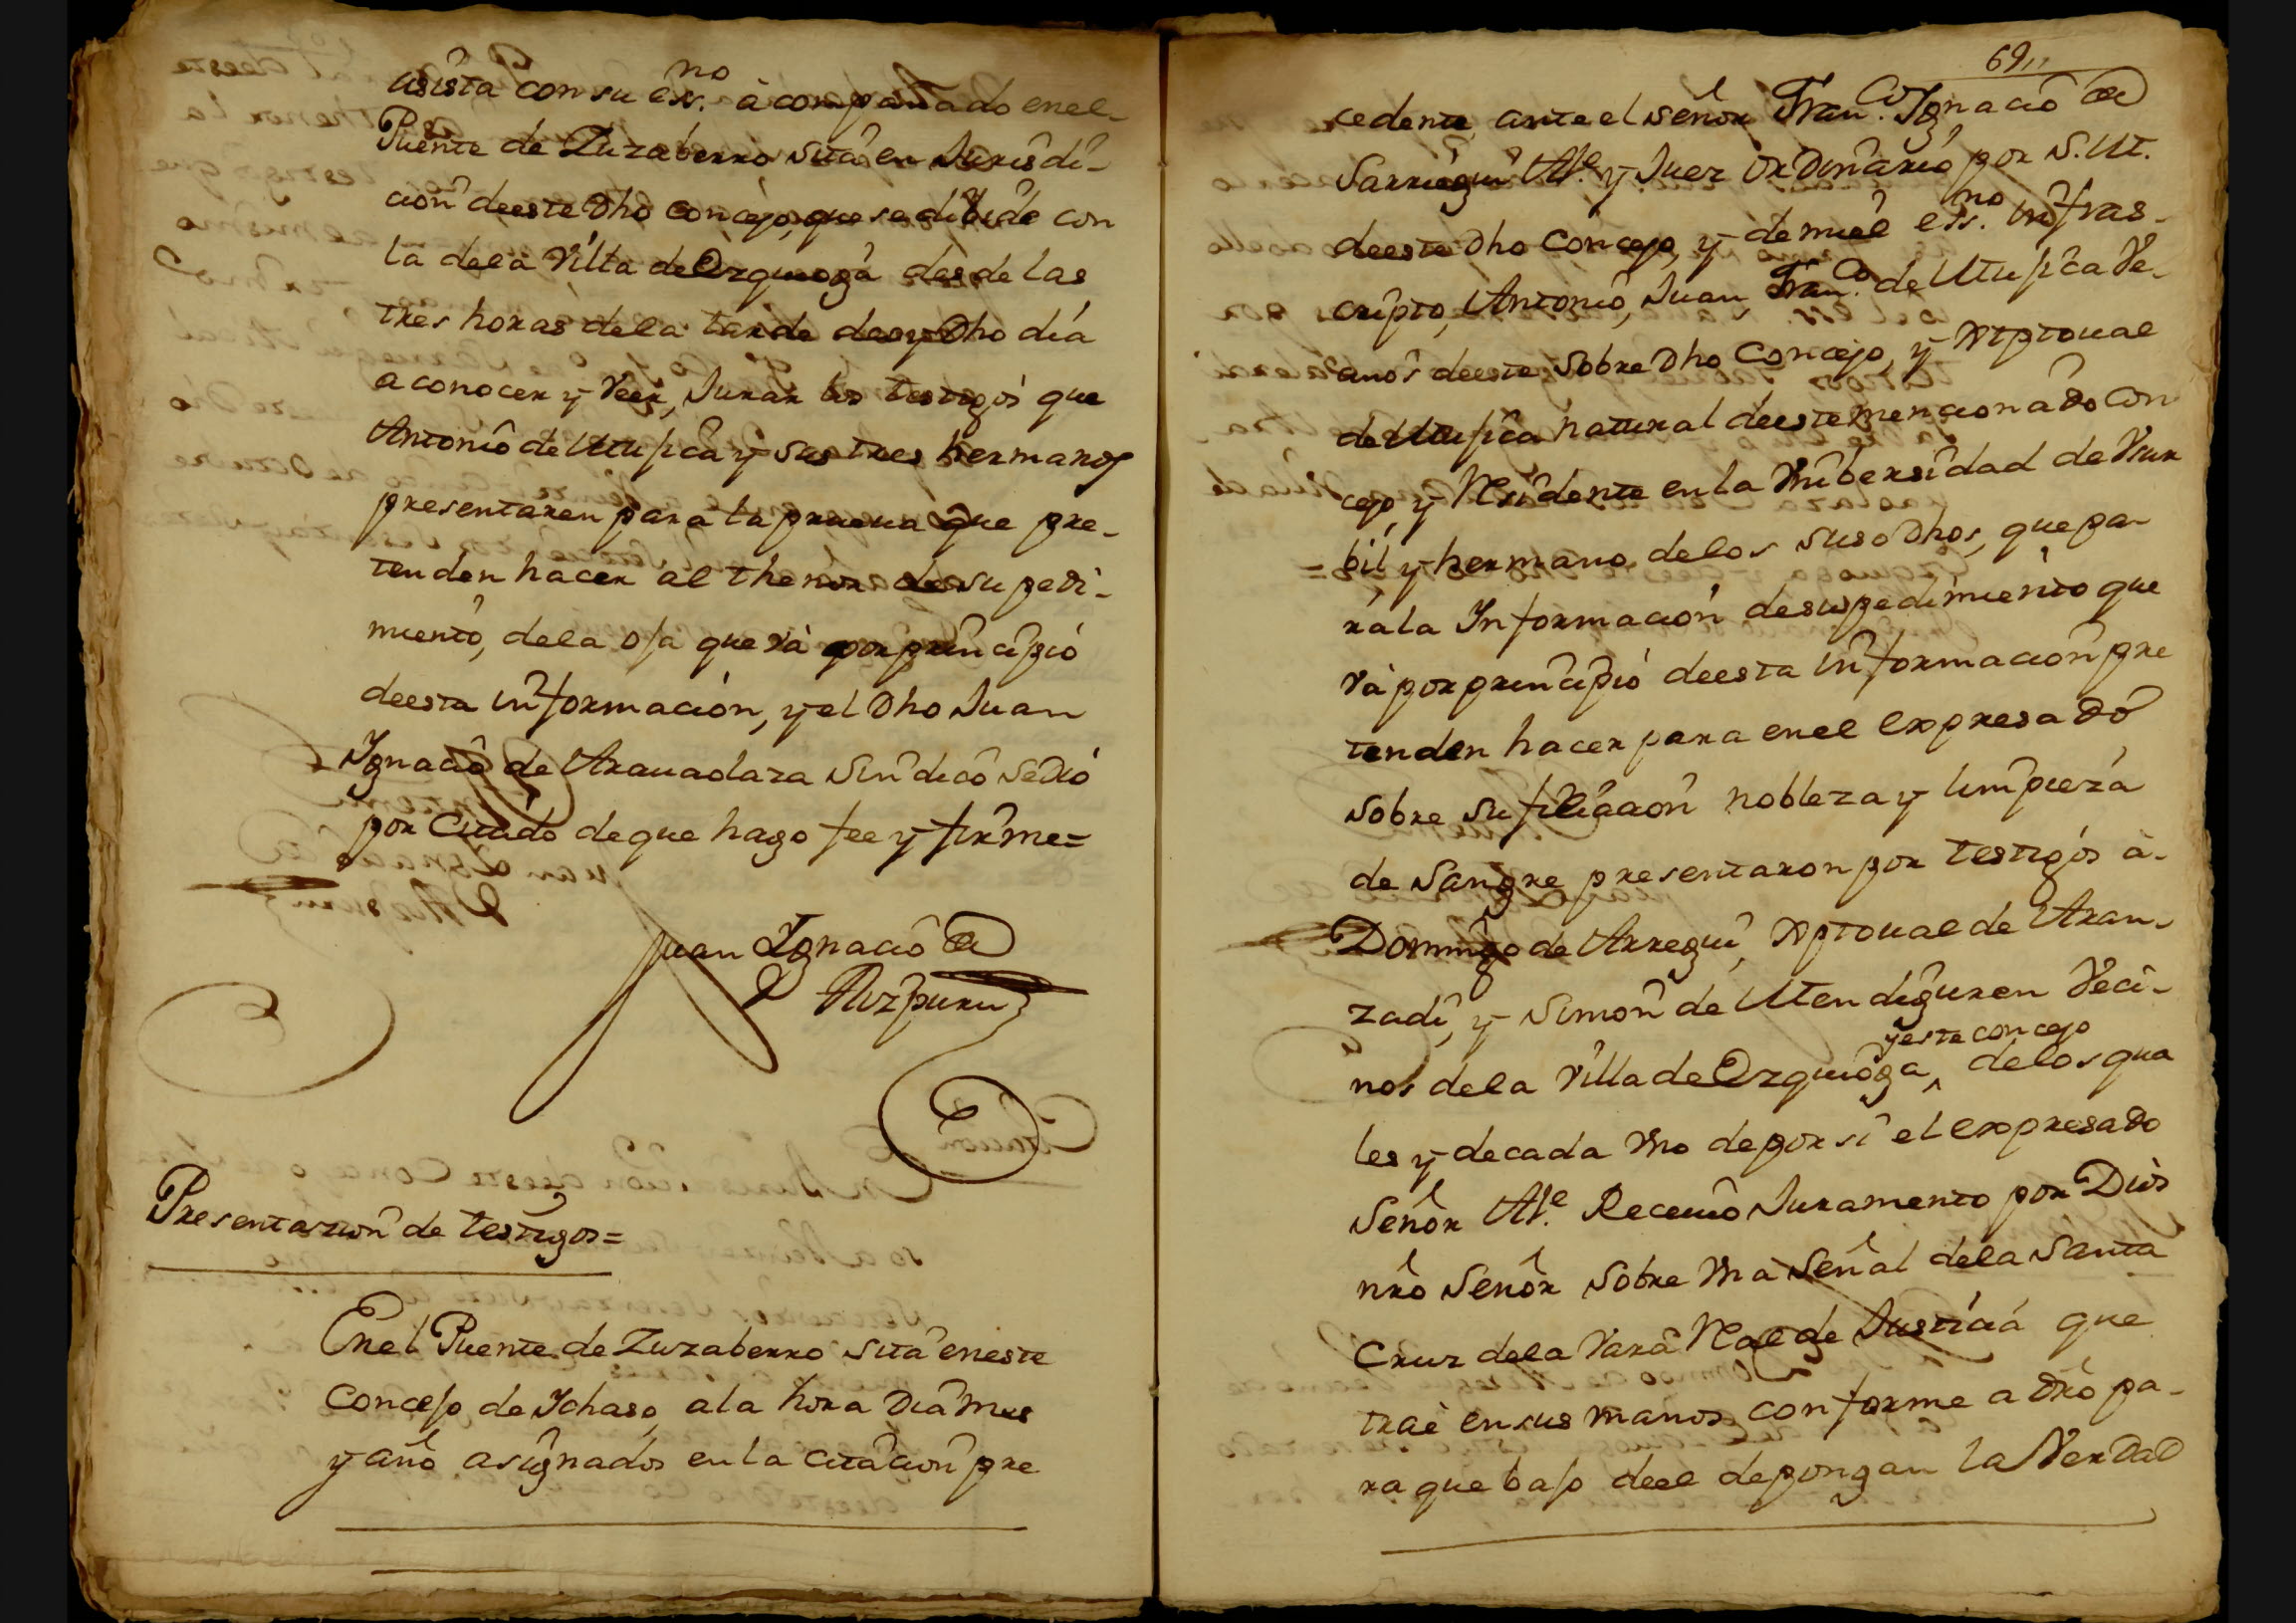 asista con su ess.no acompañado en el
Puente de Zuzaberro sita en Jurisdi-
cion de este Dho concejo, que se dibide con
la de la Villa de Ezquioga desde las
tres horas de la tarde de oy Dho dia
a conocer y Veer, Jurar los testigos que
Antonio de Utupica y sus tres hermanos
presentaren para la prueua que pre-
tenden hacer al thenor de su pedi-
miento, de la ofa que va por principio
de esta informacion, y el Dho Juan
Ygnacio de Arauaolaza Sindico se Dio
por Citado de que hago fee y firme=
Juan Ignacio de
Aizpuru
Presentazion de testigos=
En el Puente de Zuzaberro sita en este
Concejo de Ichaso, a la hora Dia Mes
y año asignados en la citacion pre
69,,
cedente, ante el Señor Fran.co Ygnacio de
Sarriegui Al.e y Juez ordinario por S. M.
de este Dho Concejo, y de mi el ess.no infras-
cripto, Antonio, Juan, Fran.co de Utupica Ve-
cinos de este sobre Dho Concejo, y Xptoual
de Utupica natural de este mencionado con
cejo y Residente en la Vnibersidad de Vrur
bil y hermano de los suso Dhos, que pa-
ra la Informacion de su pedimiento que
va por principio de esta informacion pre
tenden hacer para en el expresado
sobre su filiacion nobleza y limpieza
de Sangre presentaron por testigos a
Domingo de Arregui, Xptoual de Aran-
zadi, y Simon de Mendiguren Veci-
nos de la Villa de Ezquioga, y este concejo de los qua
les y de cada Vno de por si el expresado
Señor Al.e Receuio Juramento por Dios
nro Señor sobre Vna Señal de la Santa
Cruz de la Vara Real de Justicia que
trae en sus manos conforme a dro pa-
ra que bajo de el depongan la Verdad